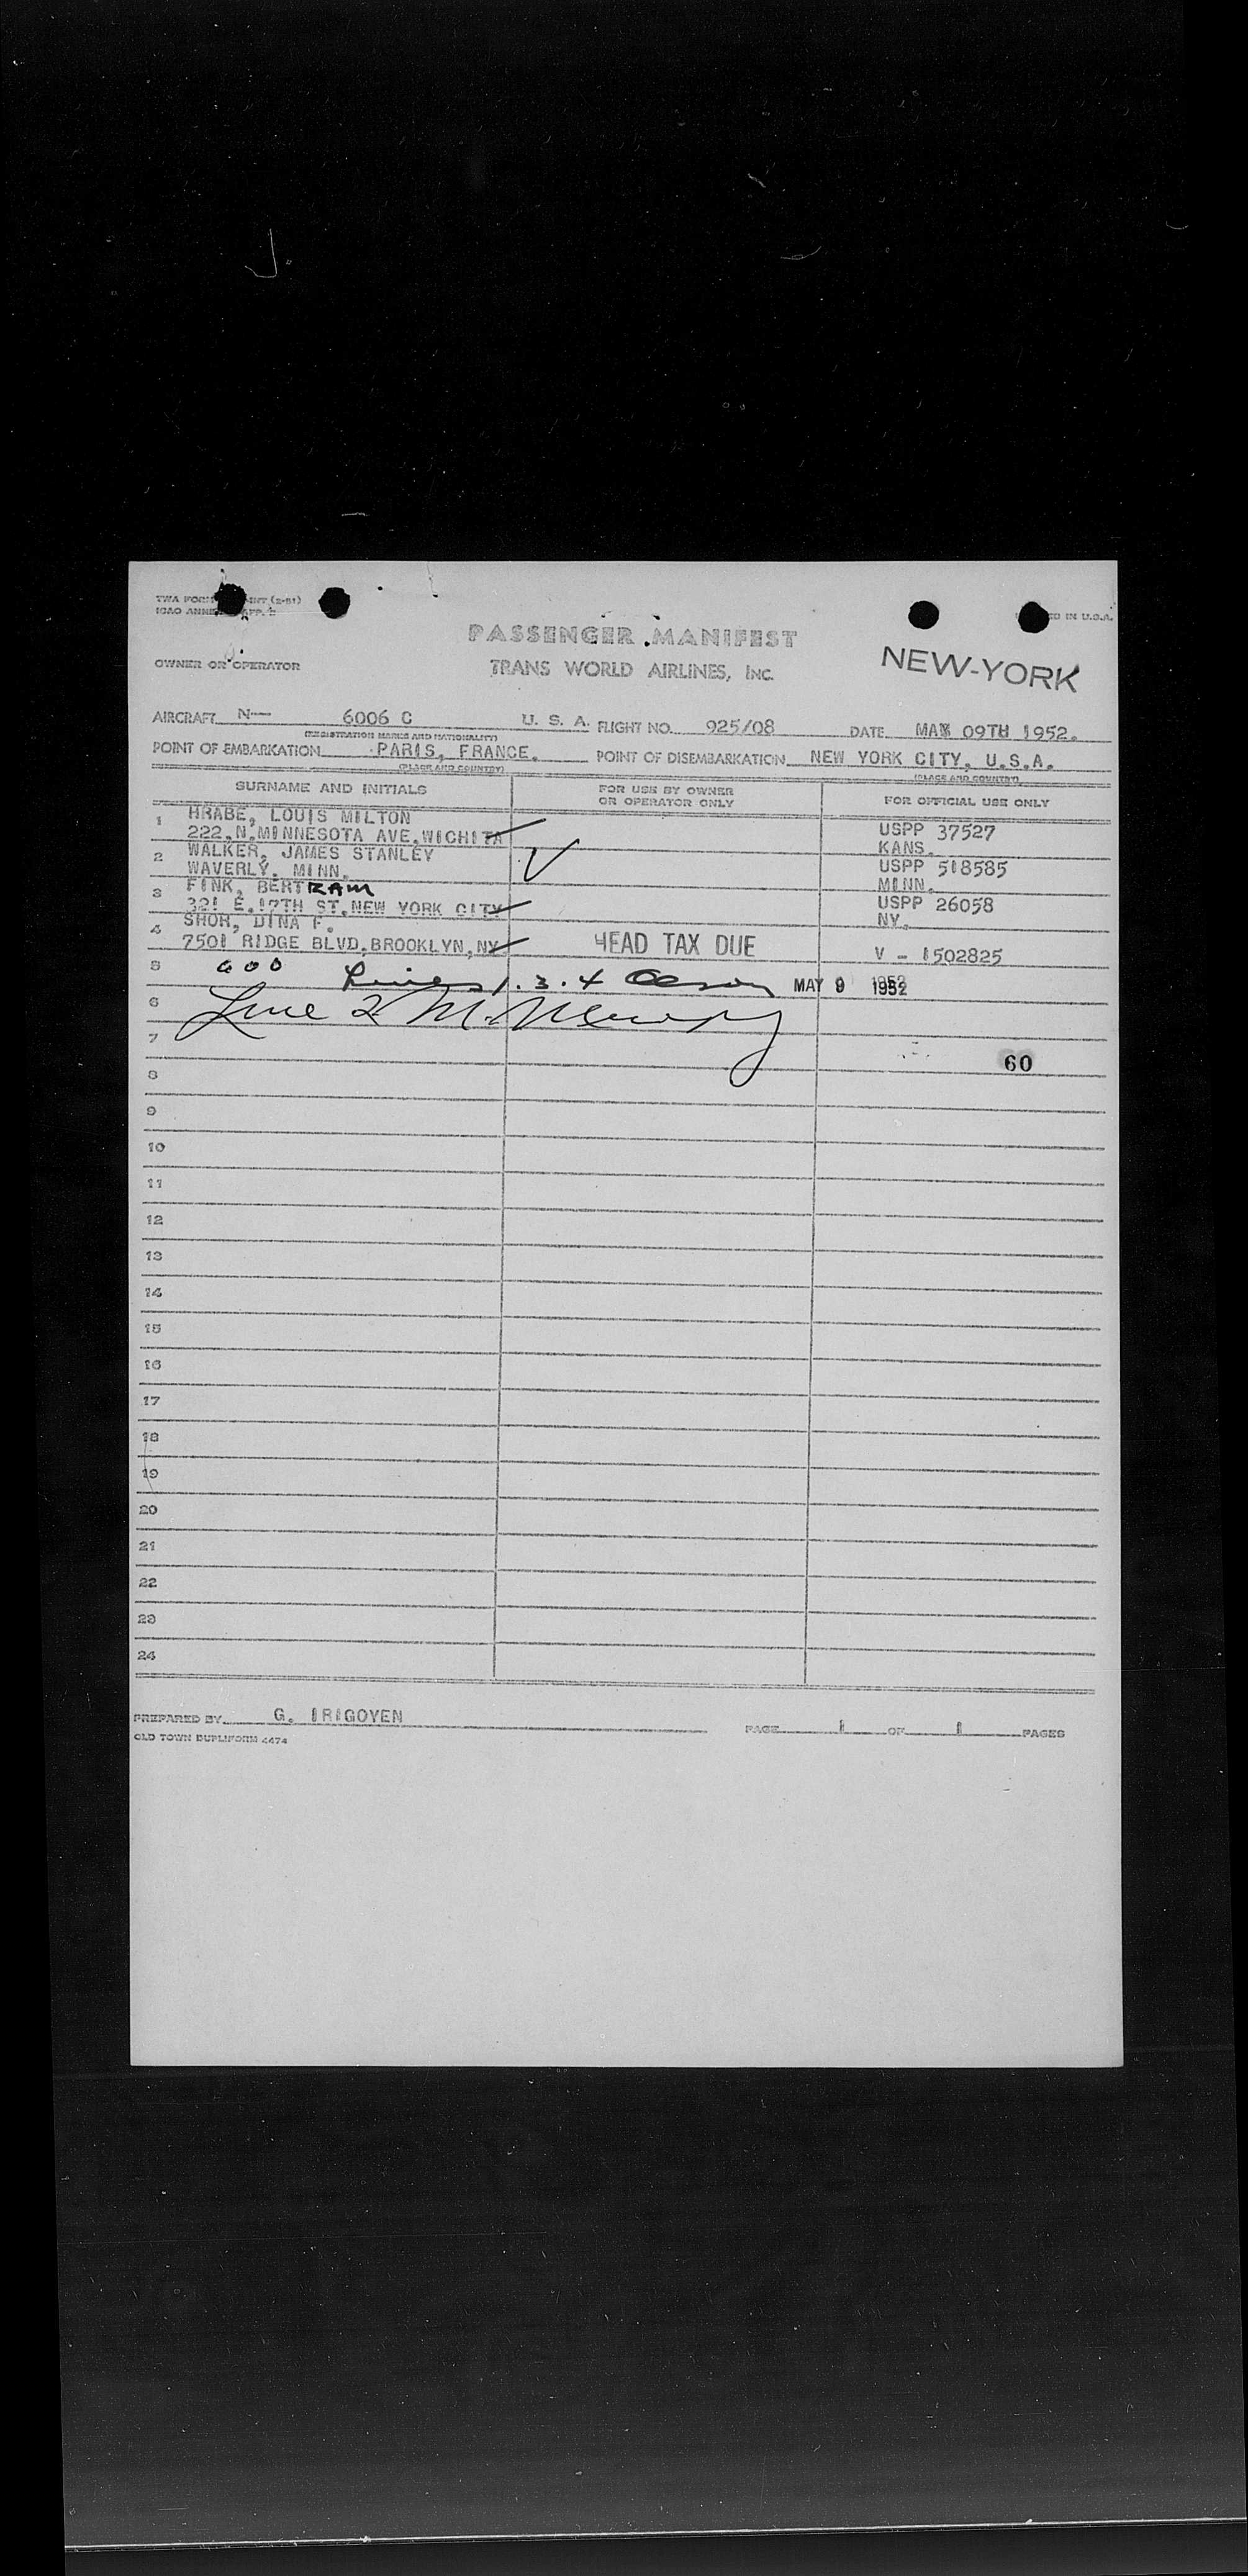 TWA FORM INT (2-51)
ICAO ANNEX APP. 2
ED IN U.S.A.
PASSENGER MANIFEST
OWNER OR OPERATOR
TRANS WORLD AIRLINES, INC.
NEW-YORK
AIRCRAFT N— 6006 C U. S. A. FLIGHT NO. 925/08 DATE MAY 09TH 1952.
(REGISTRATION MARKS AND NATIONALITY)
POINT OF EMBARKATION PARIS, FRANCE. POINT OF DISEMBARKATION NEW YORK CITY, U.S.A.
(PLACE AND COUNTRY) (PLACE AND COUNTRY)
SURNAME AND INITIALS FOR USE BY OWNER OR OPERATOR ONLY FOR OFFICIAL USE ONLY
1 HRABE, LOUIS MILTON USPP 37527
222.N.MINNESOTA AVE.WICHITA KANS.
2 WALKER, JAMES STANLEY USPP 518585
WAVERLY. MINN. MINN.
3 FINK, BERTRAM USPP 26058
321 E.17TH ST.NEW YORK CITY NY.
4 SHOR, DINA F.
7501 RIDGE BLVD.BROOKLYN,NY HEAD TAX DUE V - 1502825
5 600 Lines 1.3.4 MAY 9 1952
6 Line 2
7
60
8
9
10
11
12
13
14
15
16
17
18
19
20
21
22
23
24
PREPARED BY G. IRIGOYEN PAGE 1 OF 1 PAGES
OLD TOWN DUPLIFORM 4474